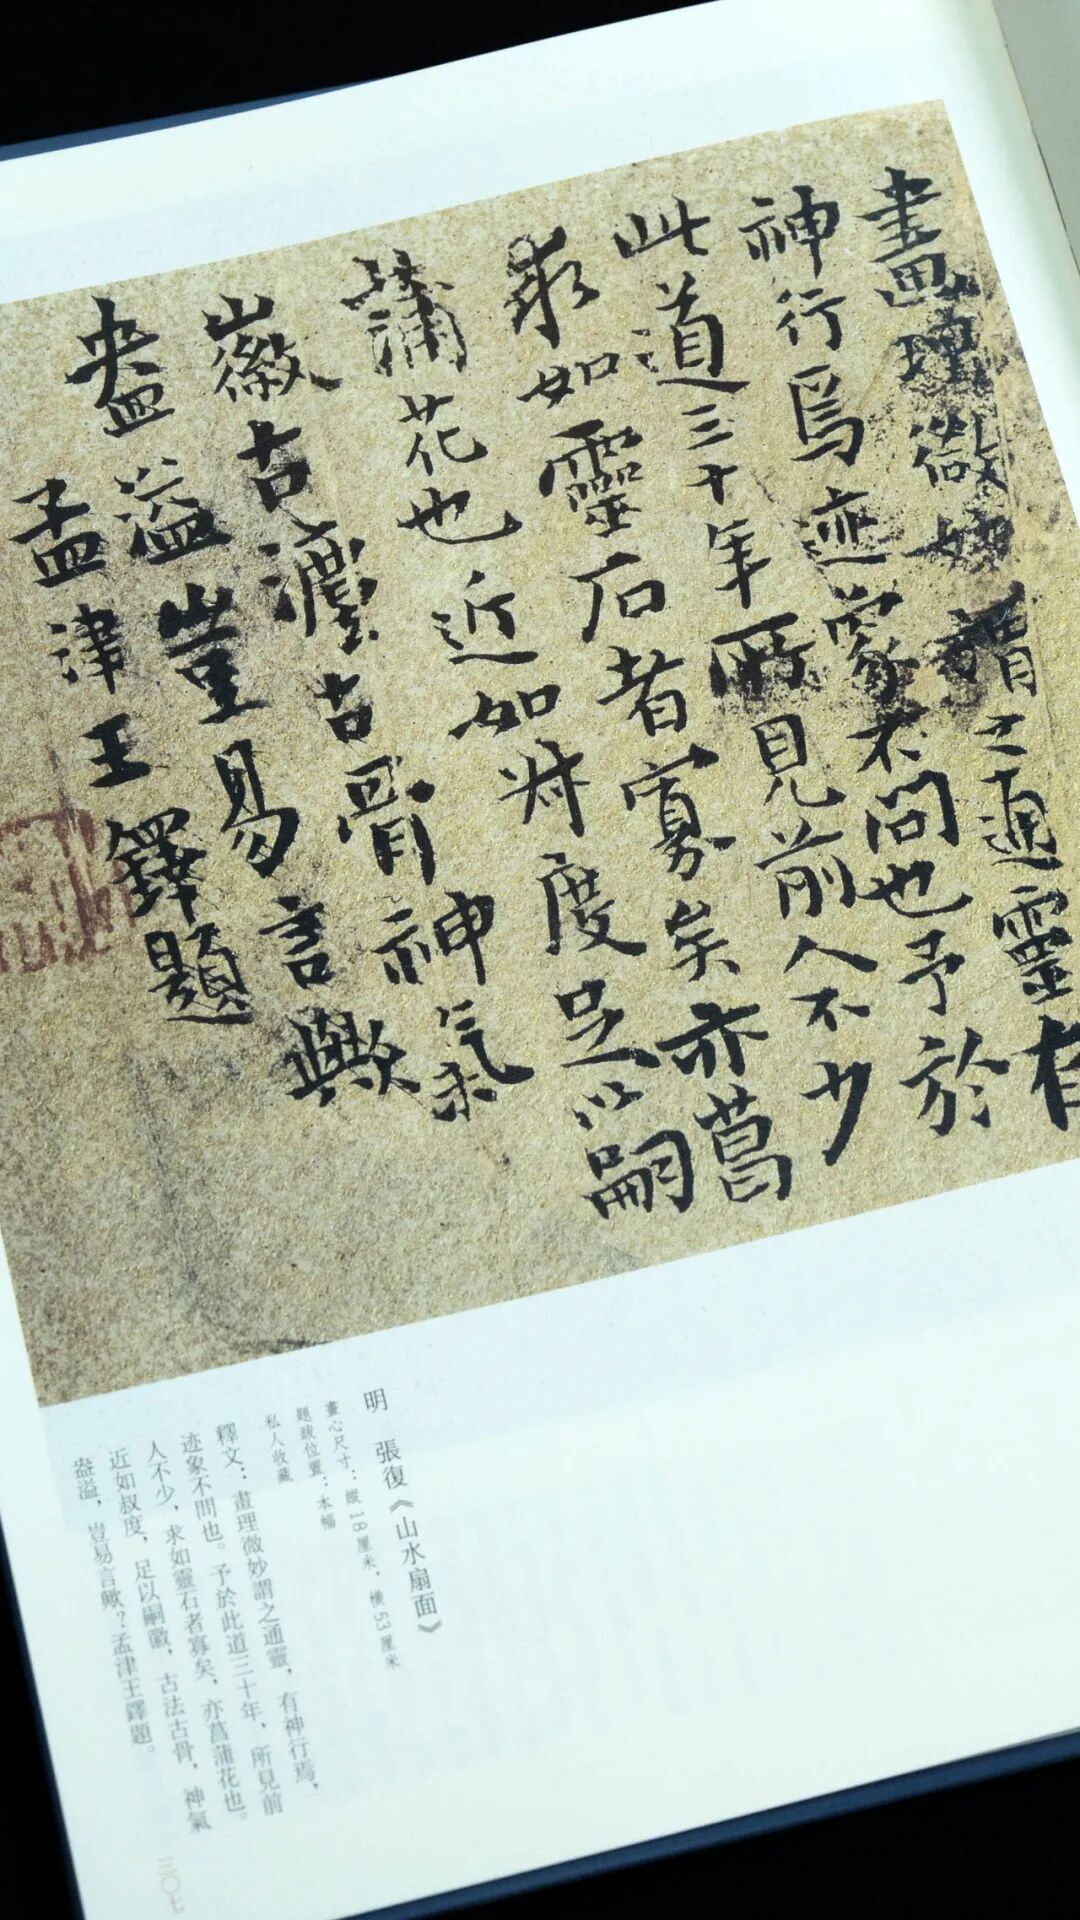 畫理微妙謂之通靈有
神行焉迹象不問也予於
此道三十年所見前人不少
求如靈石者寡矣亦菖
蒲花也近如叔度足以嗣
徽古灋古骨神氣
盎溢豈易言歟
孟津王鐸題
明 張復《山水扇面》
畫心尺寸：縱18厘米，橫53厘米
題跋位置：本幅
私人收藏
釋文：畫理微妙謂之通靈，有神行焉，
迹象不問也。予於此道三十年，所見前
人不少，求如靈石者寡矣，亦菖蒲花也。
近如叔度，足以嗣徽，古法古骨，神氣
盎溢，豈易言歟？孟津王鐸題。
三〇七